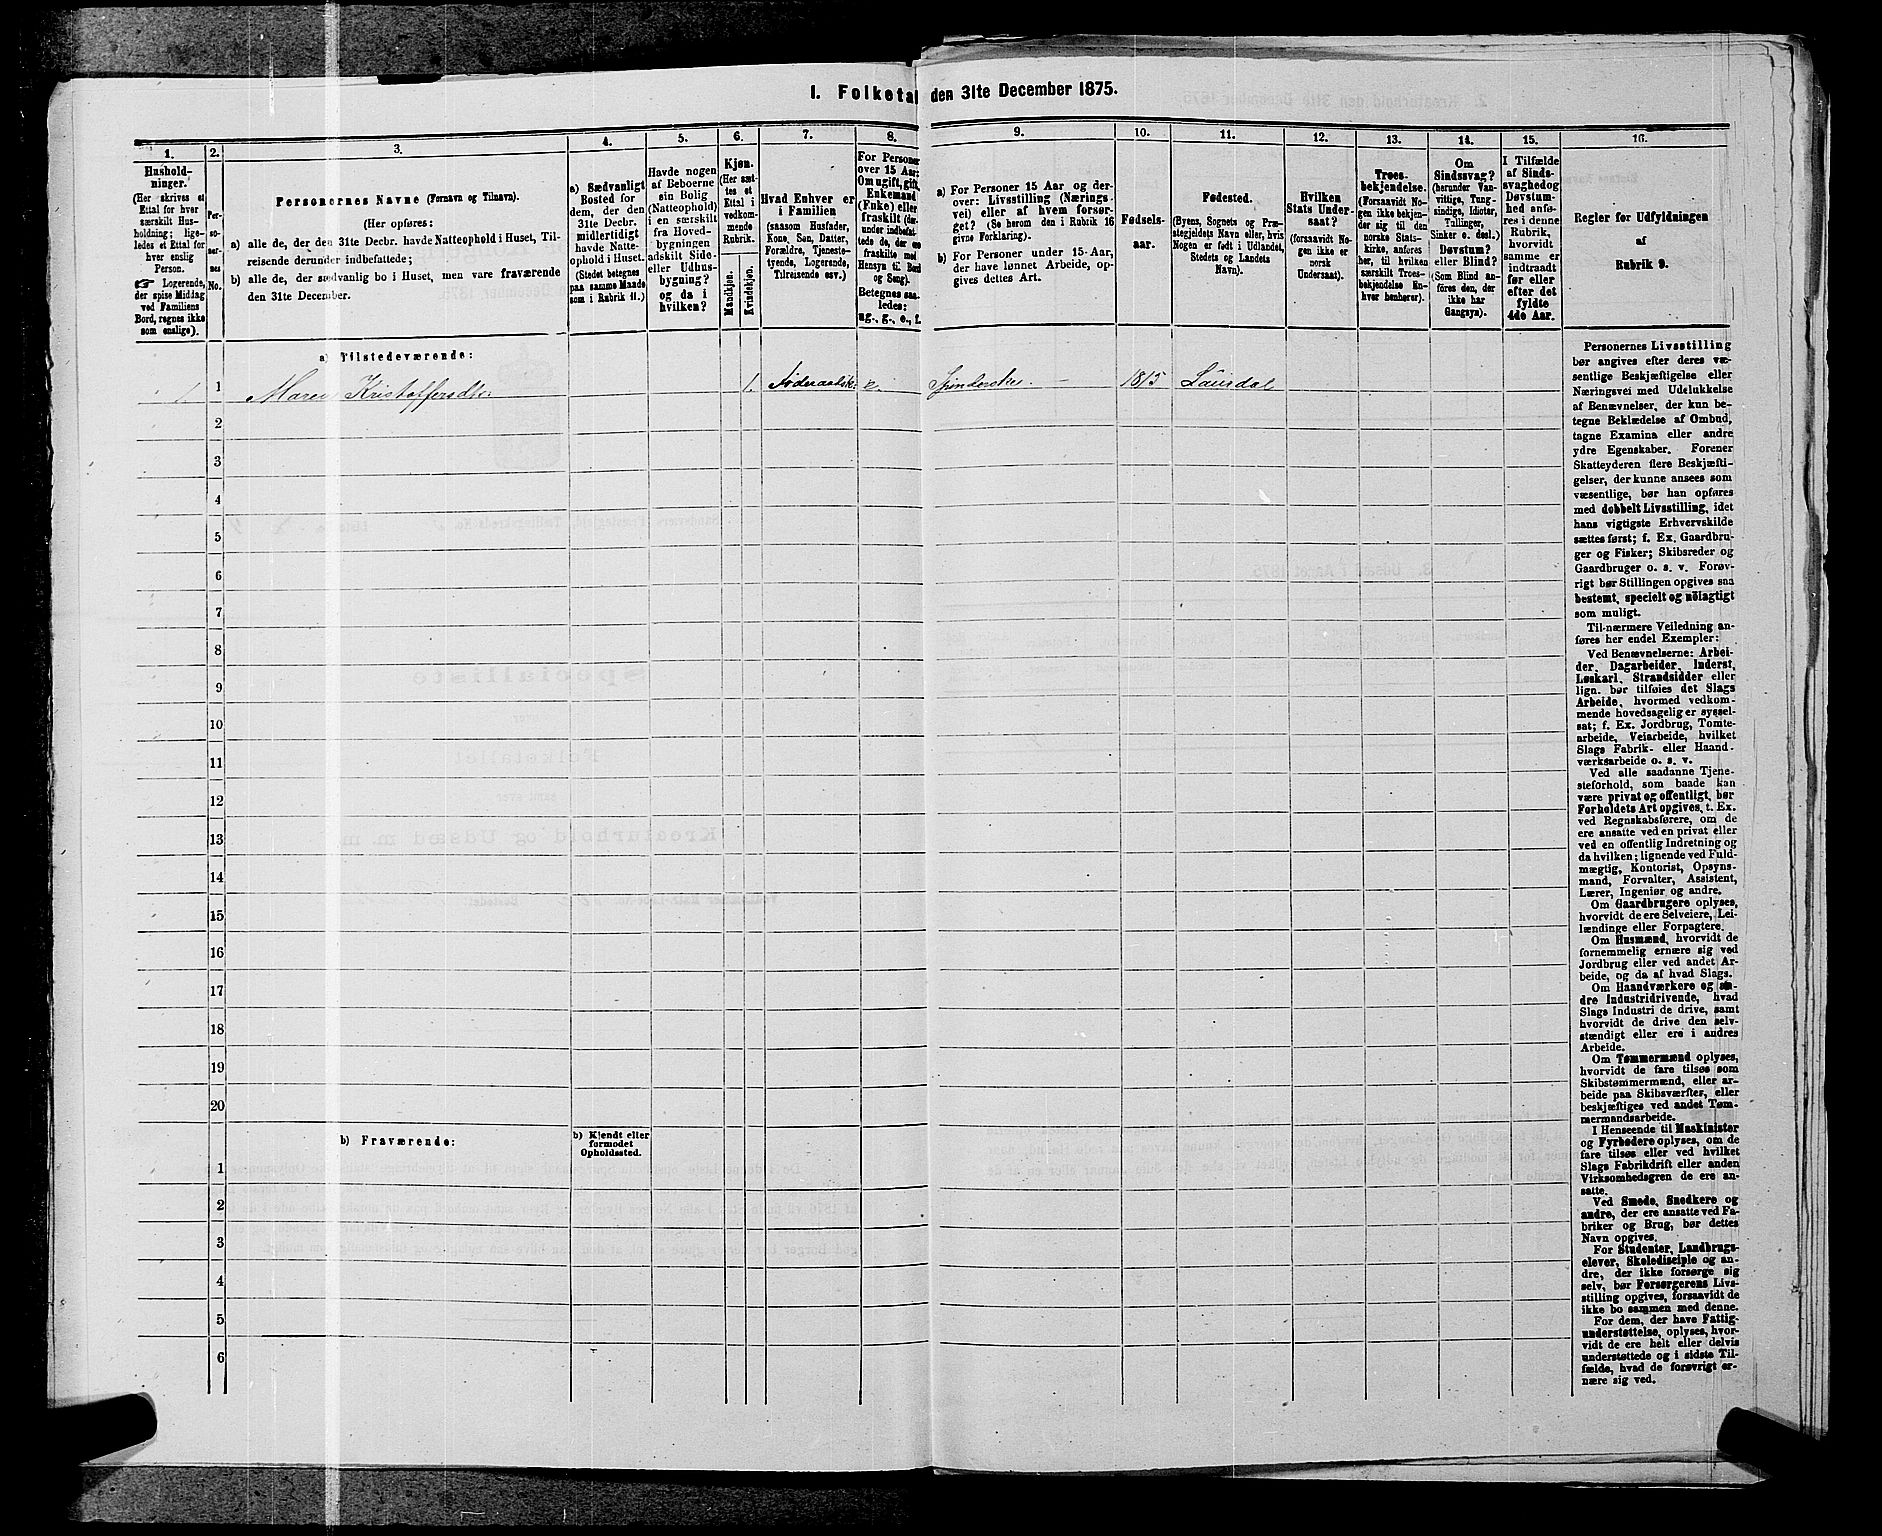 I. Folketal den 31te December 1875.
1.
Hushold-
ninger.
(Her skrives et
Ettal for hver
særskilt Hus-
holdning; lige-
ledes et Ettal for
hver enslig
Person.
☛ Logerende,
der spise Middag
ved Familiens
Bord, regnes ikke
som enslige).
2.
Per-
so-
ner-
nes
No.
3.
Personernes Navne (Fornavn og Tilnavn).
(Her opføres:
a) alle de, der den 31te Decbr. havde Natteophold i Huset, Til-
reisende derunder indbefattede;
b) alle de, der sædvanlig bo i Huset, men vare fraværende
den 31te December.
4.
a) Sædvanligt
Bosted for
dem, der den
31te Decbr.
midlertidigt
havde Natte-
ophold i Huset.
(Stedet betegnes
paa samme Maade
som i Rubrik 11.)
5.
Havde nogen
af Beboerne
sin Bolig
(Natteophold)
i en særskilt
fra Hoved-
bygningen
adskilt Side-
eller Udhus-
bygning?
og da i
hvilken?
6.
Kjøn.
(Her sæt-
tes et
Ettal i
vedkom-
mende
Rubrik.
Mandkjøn.
Kvindekjøn.
7.
Hvad Enhver er
i Familien
(saasom Husfader,
Kone, Søn, Datter,
Forældre, Tjeneste-
tyende, Logerende,
Tilreisende osv.)
8.
For Personer
over 15 Aar:
Om ugift, gift,
Enkemand
(Enke) eller
fraskilt (der-
under indbefat-
tede de, der ere
fraskilte med
Hensyn til Bord
og Seng).
Betegnes saa-
ledes:
ug., g., e., f.
9.
a) For Personer 15 Aar og der-
over: Livsstilling (Nærings-
vei) eller af hvem forsør-
get? (Se herom den i Rubrik 16
givne Forklaring).
b) For Personer under 15 Aar,
der have lønnet Arbeide, op-
gives dettes Art.
10.
Fødsels-
aar.
11.
Fødested.
(Byens, Sognets og Præ-
stegjeldets Navn eller, hvis
Nogen er født i Udlandet,
Stedets og Landets
Navn).
12.
Hvilken
Stats Under-
saat?
(forsaavidt No-
gen ikke er
norsk
Undersaat).
13.
Troes-
bekjendelse.
(Forsaavidt No-
gen ikke bekjen-
der sig til den
norske Stats-
kirke, anføres
her, til hvilken
særskilt Troes-
bekjendelse En-
hver henhører).
14.
Om
Sindssvag?
(herunder Van-
vittige, Tung-
sindige, Idioter,
Tullinger,
Sinker o. desl.)
Døvstum?
eller Blind?
(Som Blind an-
føres den, der
ikke har
Gangsyn).
15.
I Tilfælde
af Sinds-
svaghed og
Døvstum-
hed anfø-
res i denne
Rubrik,
hvorvidt
samme er
indtraadt
før eller
efter det
fyldte
4de Aar.
16.
Regler for Udfyldningen
af
Rubrik 9.
a) Tilstedeværende:
1 1 Maren Kristoffersdtr. 1. e. Spinderske. — 1815 Laurdal
2
3
4
5
6
7
8
9
10
11
12
13
14
15
16
17
18
19
20
b) Fraværende:
b) Kjendt eller
formodet
Opholdssted.
1
2
3
4
5
6
Personernes Livsstilling
bør angives efter deres væ-
sentlige Beskjæftigelse eller
Næringsvei med Udelukkelse
af Benævnelser, der kun be-
tegne Beklædelse af Ombud,
tagne Examina eller andre
ydre Egenskaber. Forener
Skatteyderen flere Beskjæfti-
gelser, der kunne ansees som
væsentlige, bør han opføres
med dobbelt Livsstilling, idet
hans vigtigste Erhvervskilde
sættes først; f. Ex. Gaardbru-
ger og Fisker; Skibsreder og
Gaardbruger o. s. v. Forøv-
rigt bør Stillingen opgives saa
bestemt, specielt og nøiagtigt
som muligt.
Til nærmere Veiledning an-
føres her endel Exempler:
Ved Benævnelserne: Arbei-
der, Dagarbeider, Inderst,
Løskarl, Strandsidder eller
lign. bør tilføies det Slags
Arbeide, hvormed vedkom-
mende hovedsagelig er syssel-
sat; f. Ex. Jordbrug, Tomte-
arbeide, Veiarbeide, hvilket
Slags Fabrik- eller Haand-
værksarbeide o. s. v.
Ved alle saadanne Tjene-
steforhold, som baade kan
være privat og offentligt, bør
Forholdets Art opgives, t. Ex.
ved Regnskabsførere, om de
ere ansatte ved en privat eller
ved en offentlig Indretning og
da hvilken; lignende ved Fuld-
mægtig, Kontorist, Opsyns-
mand, Forvalter, Assistent,
Lærer, Ingeniør og andre.
Om Gaardbrugere oplyses,
hvorvidt de ere Selveiere, Lei-
lændinge eller Forpagtere.
Om Husmænd, hvorvidt de
fornemmelig ernære sig ved
Jordbrug eller ved andet Ar-
beide, og da af hvad Slags.
Om Haandværkere og an-
dre Industridrivende, hvad
Slags Industri de drive, samt
hvorvidt de drive den selv-
stændigt eller ere i andres
Arbeide.
Om Tømmermænd oplyses,
hvorvidt de fare tilsøs som
Skibstømmermænd, eller ar-
beide paa Skibsværfter, eller
beskjæftiges ved andet Tøm-
mermandsarbeide.
I Henseende til Maskinister
og Fyrbødere oplyses, om de
fare tilsøs eller ved hvilket
Slags Fabrikdrift eller anden
Virksomhedsgren de ere an-
satte.
Ved Smede, Snedkere og
andre, der ere ansatte ved Fa-
briker og Brug, bør dettes
Navn opgives.
For Studenter, Landbrugs-
elever, Skoledisciple og an-
dre, der ikke forsørge sig
selv, bør Forsørgerens Livs-
stilling opgives, forsaavidt de
ikke bo sammen med denne.
For dem, der have Fattig-
understøttelse, oplyses, hvor-
vidt de ere helt eller delvis
understøttede og i sidste Til-
fælde, hvad de forøvrigt er-
nære sig ved.